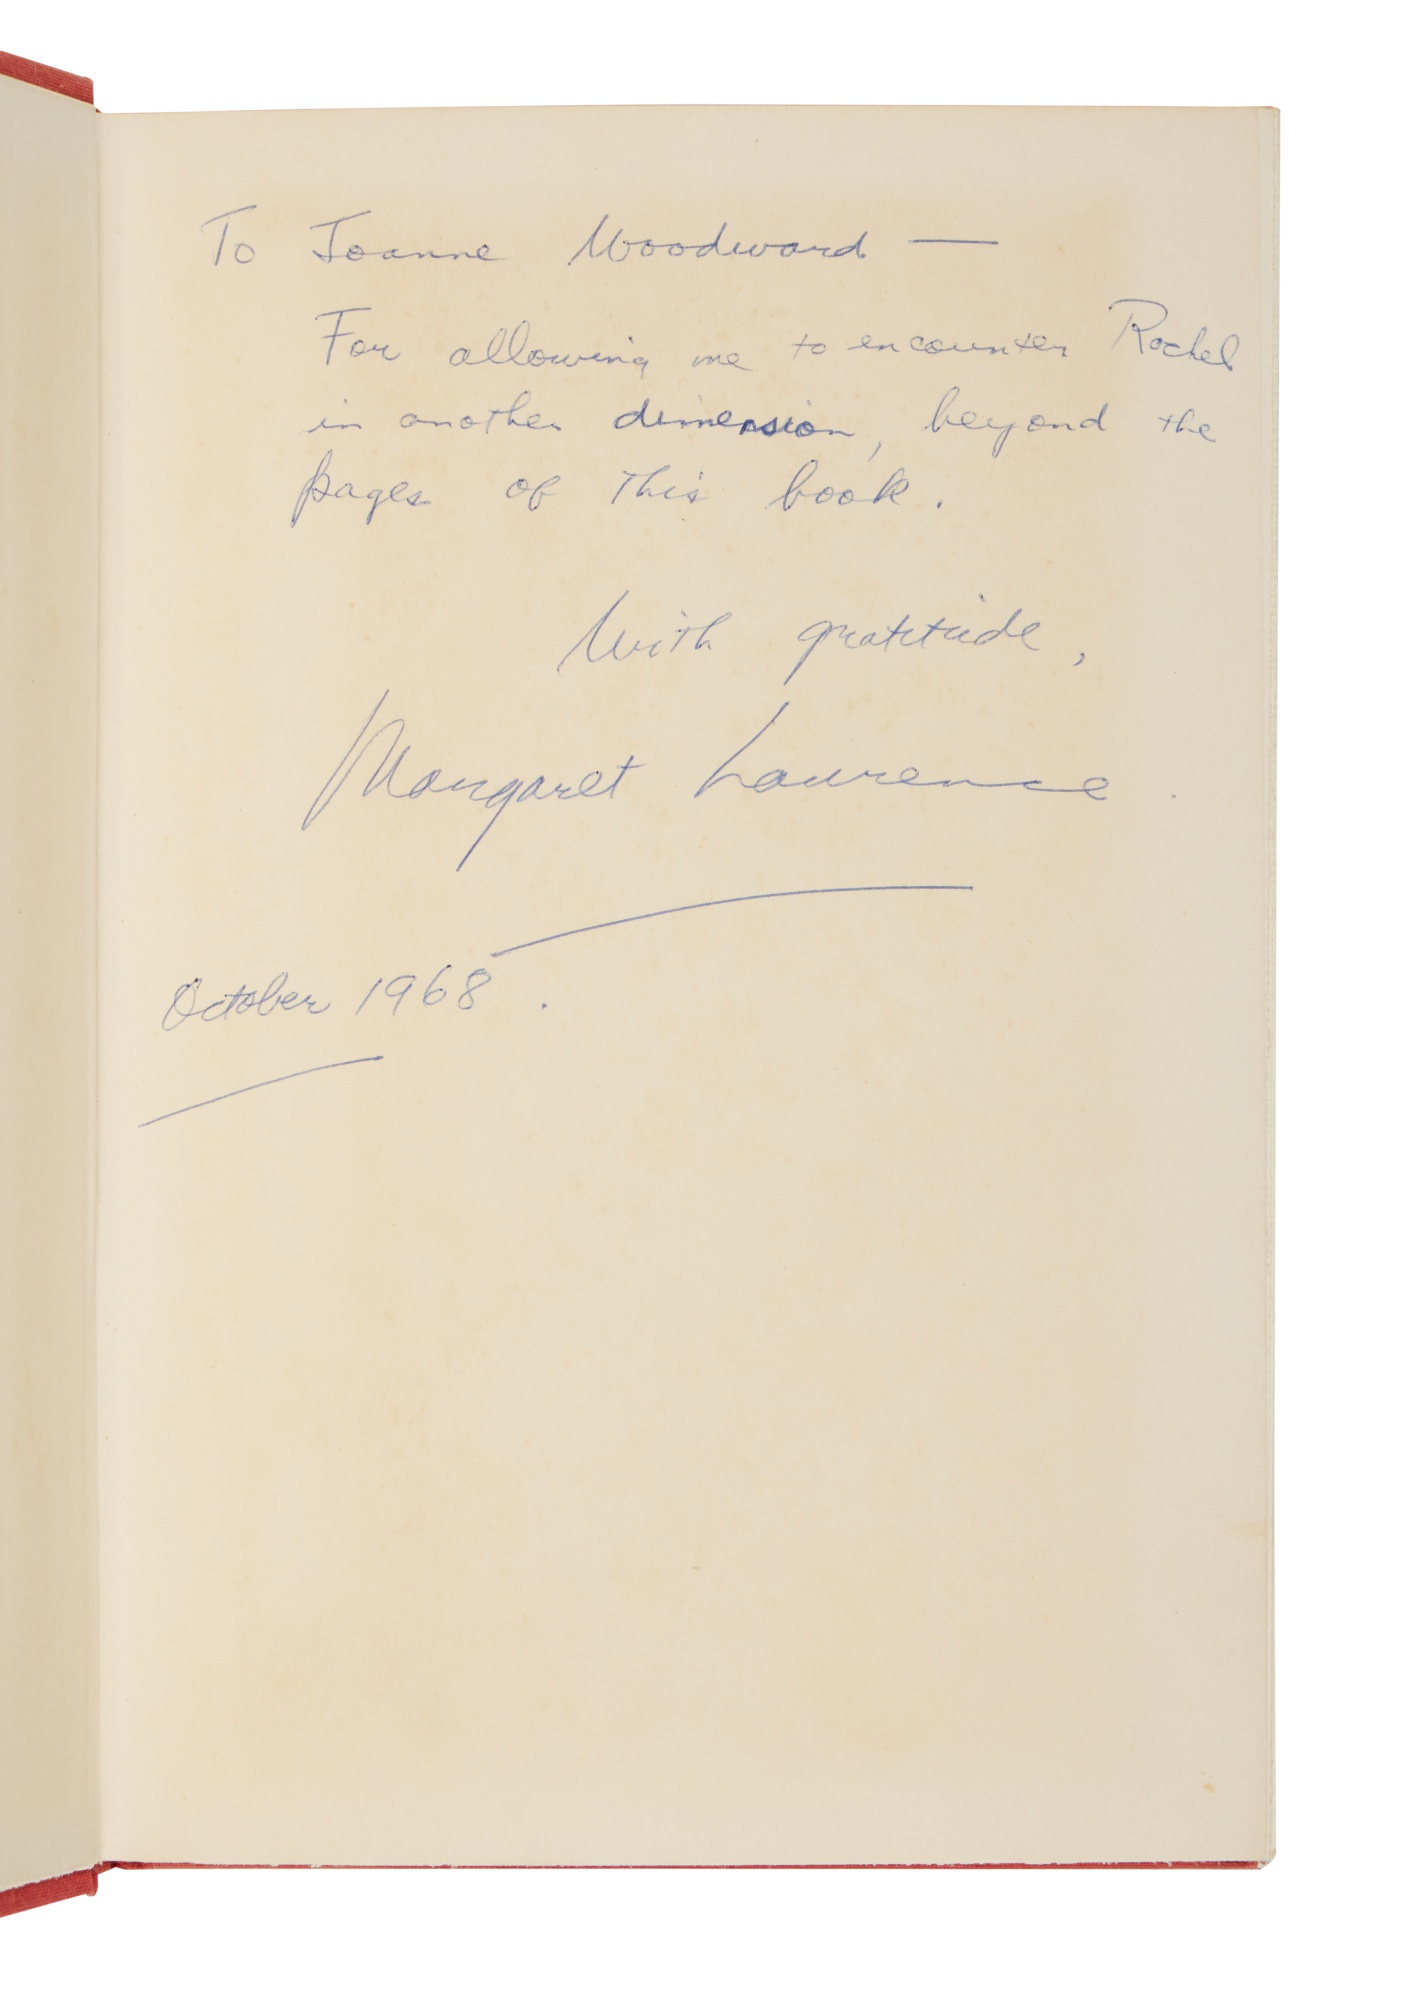 To Joanne Woodward —
For allowing me to encounter Rachel
in another dimension, beyond the
pages of this book.
With gratitude,
Margaret Laurence.
October 1968.